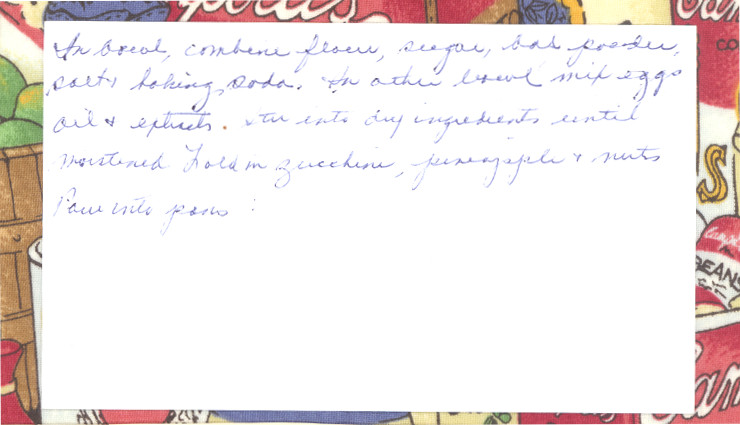 In bowl, combine flour, sugar, bak powder,
salt & baking soda. In other bowl mix eggs
oil & extracts. Stir into dry ingredients until
moistened Fold in zucchini, pineapple & nuts
Pour into pans
EANS
S